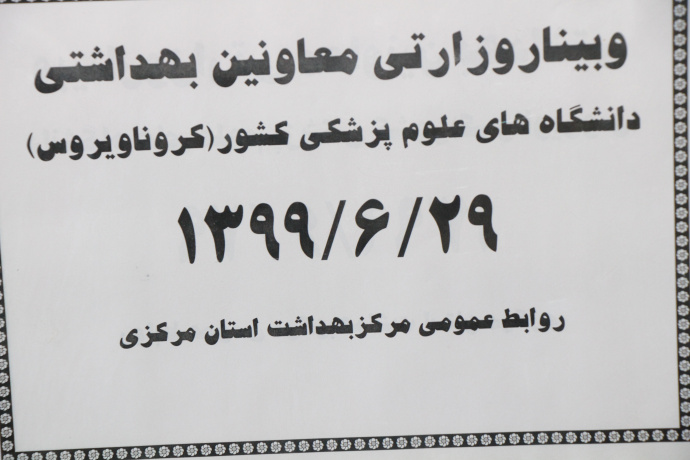 وبیناروزارتی معاونین بهداشتی
دانشگاه های علوم پزشکی کشور(کروناویروس)
۱۳۹۹/۶/۲۹
روابط عمومی مرکزبهداشت استان مرکزی